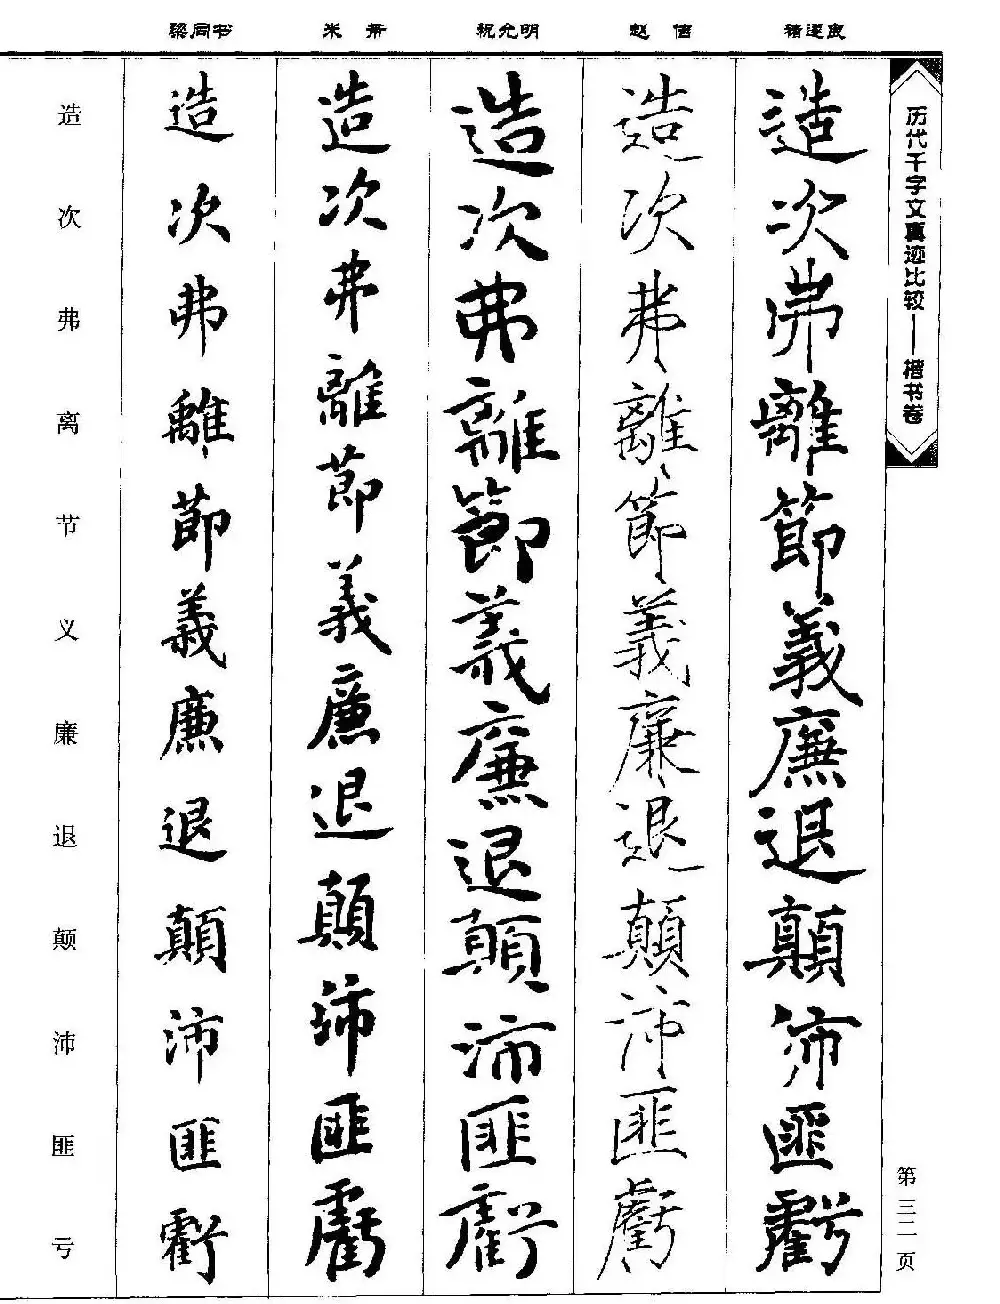 梁同书 米芾 祝允明 赵佶 褚遂良
历代千字文真迹比较——楷书卷
第三二页
造次弗離節義廉退顛沛匪虧
造次弗離節義廉退顛沛匪虧
造次弗離節義廉退顛沛匪虧
造次弗離莭義廉退顛沛匪虧
造次弗離莭義廉退顛沛匪虧
造次弗离节义廉退颠沛匪亏